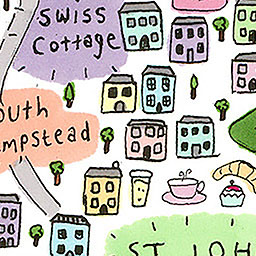 SWISS
Cottage
OUTH
MPSTEAD
ST JOH